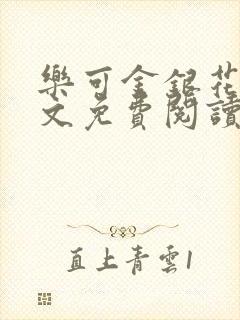 樂可金銀花
文免費閱讀
直上青雲1